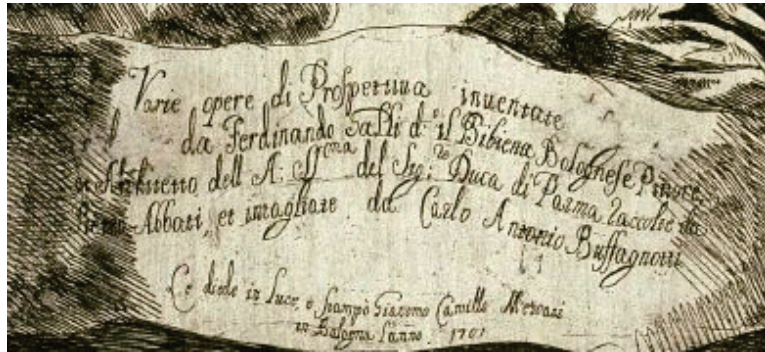 Varie opere di Prospettiua inuentate
da Ferdinando Galli d.º il Bibiena Bolognese Pittore,
e Architetto dell A: S.ma del Sig: Duca di Parma Racolte da
Pietro Abbati, et intagliate da Carlo Antonio Buffagnotti
Le diede in Luce, e stampò Giacomo Camillo Mercati
in Bologna l'anno 1701